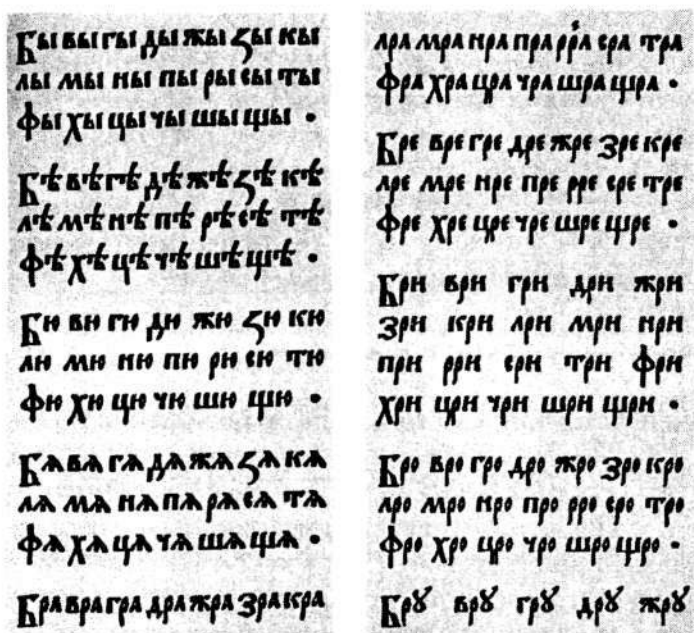 Бы вы гы ды жы ꙁы кы
лы мы ны пы ры сы ты
фы хы цы чы шы щы ·
Бѣ вѣ гѣ дѣ жѣ ꙁѣ кѣ
лѣ мѣ нѣ пѣ рѣ сѣ тѣ
фѣ хѣ цѣ чѣ шѣ щѣ ·
Бю вю гю дю жю ꙁю кю
лю мю ню пю рю сю тю
фю хю цю чю шю щю ·
Бѧ вѧ гѧ дѧ жѧ ꙁѧ кѧ
лѧ мѧ нѧ пѧ рѧ сѧ тѧ
фѧ хѧ цѧ чѧ шѧ щѧ ·
Бра вра гра дра жра зра кра
лра мра нра пра рра сра тра
фра хра цра чра шра щра ·
Бре вре гре дре жре зре кре
лре мре нре пре рре сре тре
фре хре цре чре шре щре ·
Бри ври гри дри жри
зри кри лри мри нри
при рри сри три фри
хри цри чри шри щри ·
Бро вро гро дро жро зро кро
лро мро нро про рро сро тро
фро хро цро чро шро щро ·
Брꙋ врꙋ грꙋ дрꙋ жрꙋ